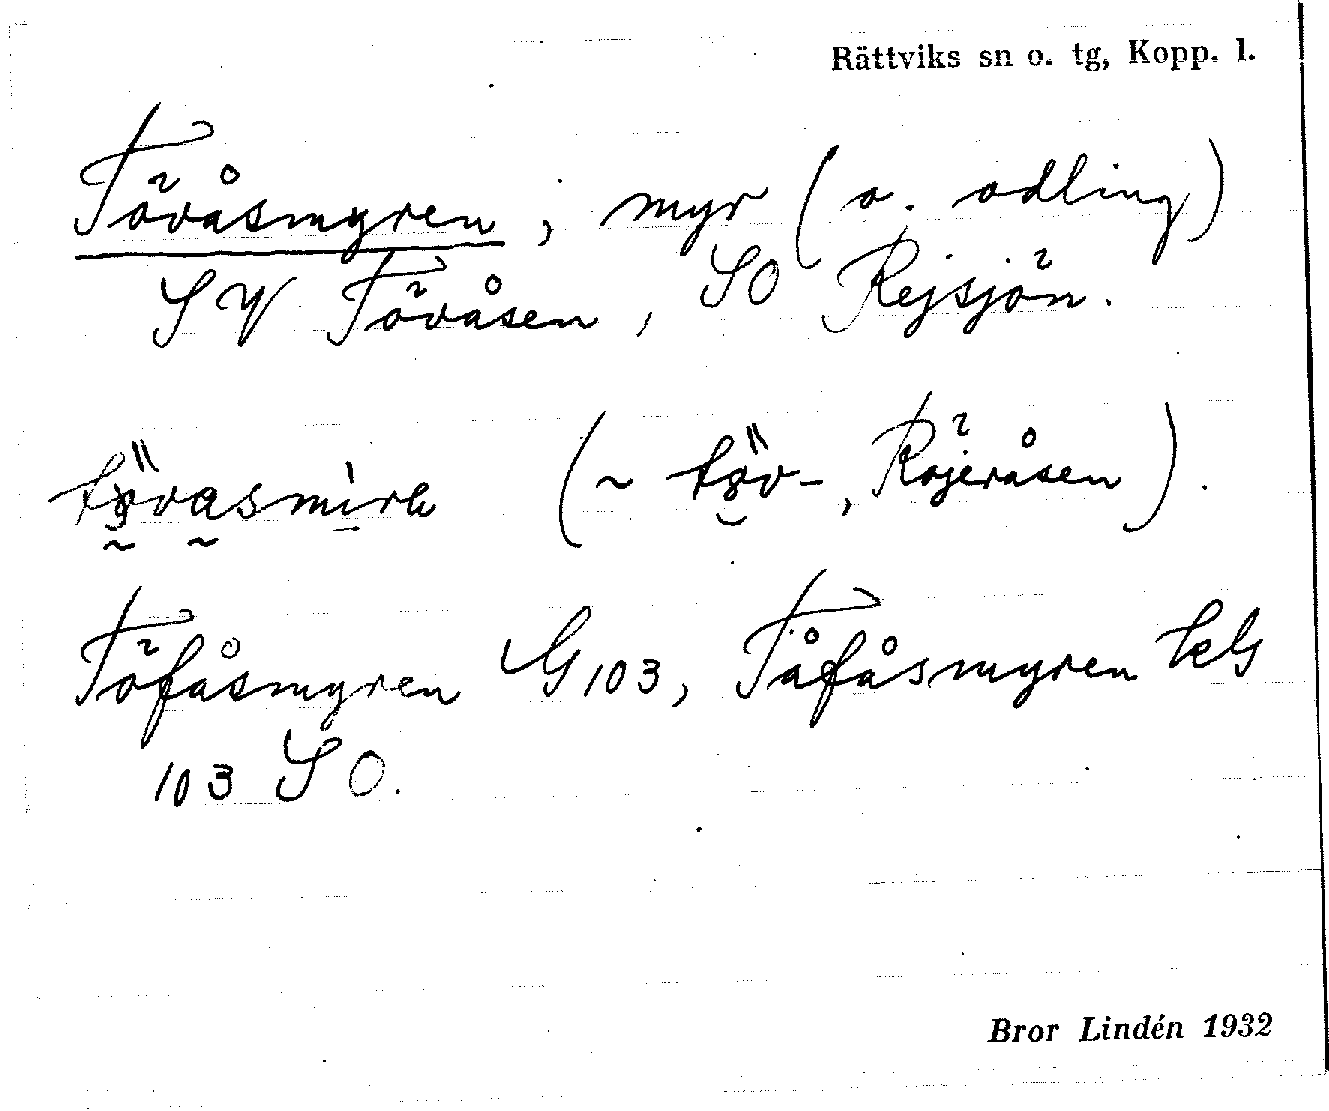 Rättviks sn o. tg, Kopp. l.
Tövåsmyren, myr (o. odling)
SV Tövåsen, SO Rejsjön.
(~ Röjeråsen).
Töfåsmyren G 103, Tåfåsmyren
103 SO.
Bror Lindén 1932